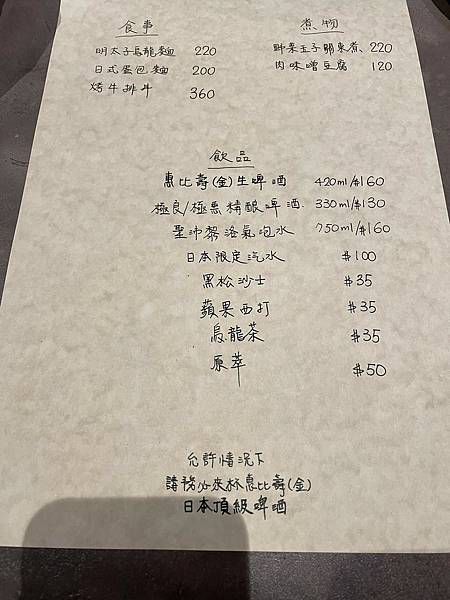 食事
明太子烏龍麵 220
日式蛋包麵 200
烤牛排丼 360
煮物
野菜玉子關東煮 220
肉味噌豆腐 120
飲品
惠比壽(金)生啤酒 420ml/$160
極良/極黑精釀啤酒 330ml/$130
聖沛黎洛氣泡水 750ml/$160
日本限定汽水 $100
黑松沙士 $35
蘋果西打 $35
烏龍茶 $35
原萃 $50
允許情況下
請務必來杯惠比壽(金)
日本頂級啤酒